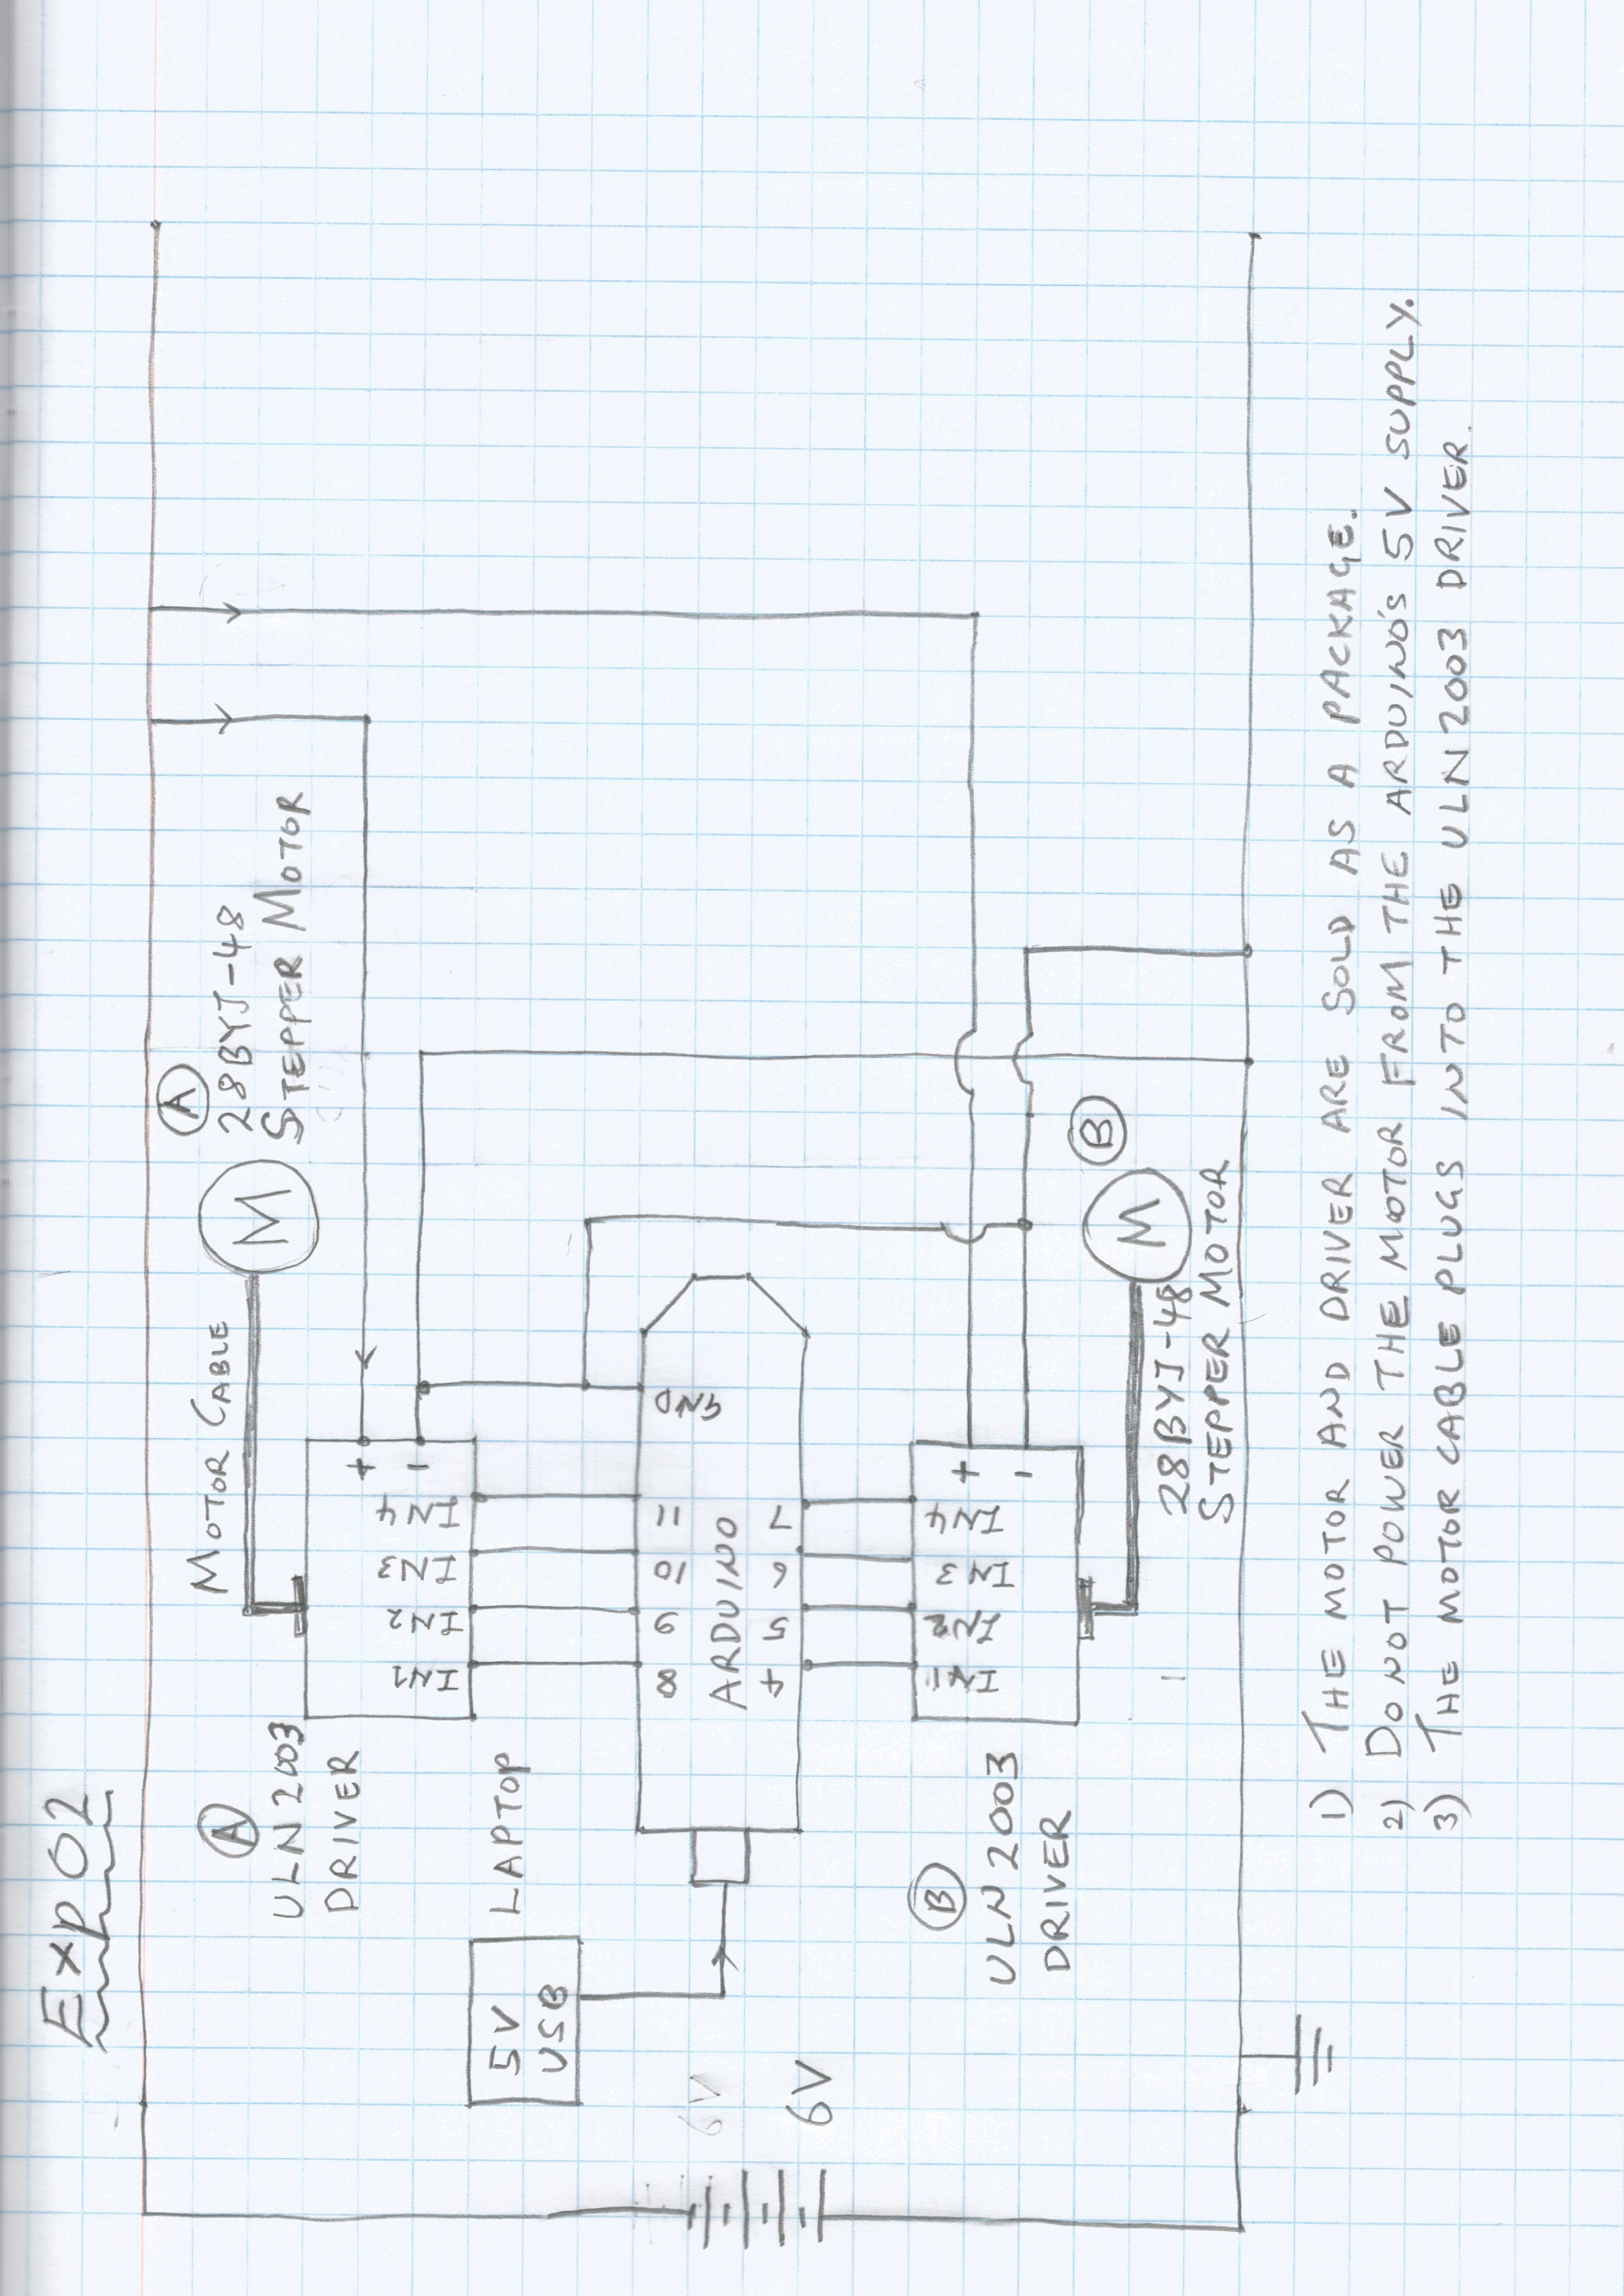 Exp 02
A
ULN 2003
DRIVER
MOTOR CABLE
M
A
28BYJ-48
STEPPER MOTOR
+
-
IN1
IN2
IN3
IN4
5V
USB
LAPTOP
8
9
10
11
GND
ARDUINO
4
5
6
7
6V
6V
B
ULN 2003
DRIVER
IN1
IN2
IN3
IN4
+
-
M
B
28BYJ-48
STEPPER MOTOR
1) THE MOTOR AND DRIVER ARE SOLD AS A PACKAGE.
2) DO NOT POWER THE MOTOR FROM THE ARDUINO'S 5V SUPPLY.
3) THE MOTOR CABLE PLUGS INTO THE ULN 2003 DRIVER.